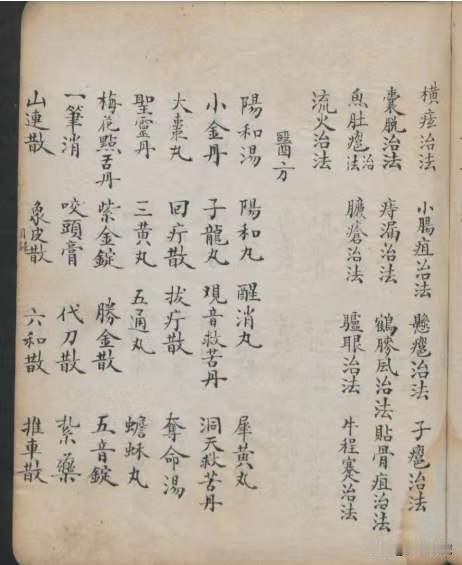 橫痃治法 小腸疽治法 懸癰治法 子癰治法
囊脫治法 痔漏治法 鶴膝風治法 貼骨疽治法
魚肚癰治法 臁瘡治法 驢眼治法 牛程蹇治法
流火治法
醫方
陽和湯 陽和丸 醒消丸 犀黃丸
小金丹 子龍丸 觀音救苦丹 洞天救苦丹
大棗丸 回疔散 拔疔散 奪命湯
聖靈丹 三黃丸 五通丸 蟾蛛丸
梅花點舌丹 紫金錠 勝金散 五音錠
一筆消 咬頭膏 代刀散 紮藥
山連散 象皮散 六和散 推車散